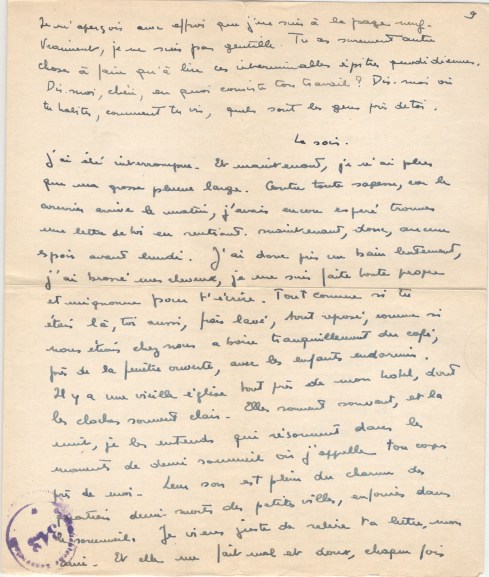 9
Je m'aperçois avec effroi que j'en suis à la page neuf.
Vraiment, je ne suis pas gentille. Tu as surement autre
chose à faire qu'à lire ces interminables épitres quotidiennes.
Dis-moi, chéri, en quoi consiste ton travail? Dis-moi où
tu habites, comment tu vis, quels sont les gens près de toi.
Le soir.
J'ai été interrompue. Et maintenant, je n'ai plus
que ma grosse plume large. Contre toute sagesse, car le
courrier arrive le matin, j'avais encore espéré trouver
une lettre de toi en rentrant. maintenant, donc, aucun
espoir avant lundi. J'ai donc pris un bain lentement,
j'ai brossé mes cheveux, je me suis faite toute propre
et mignonne pour t'écrire. Tout comme si tu
étais là, toi aussi, frais lavé, tout reposé, comme si
nous étions chez nous à boire tranquillement du café,
près de la fenêtre ouverte, avec les enfants endormis.
Il y a une vieille église tout près de mon hotel, dont
les cloches sonnent clair. Elles sonnent souvent, et la
nuit, je les entends qui résonnent dans les
moments de demi sommeil où j'appelle ton corps
près de moi. Leur son est plein du charme des
demi-morts des petites villes, enfouies dans
le sommeil. Je viens juste de relire ta lettre, mon
Et elle me fait mal et doux, chaque fois